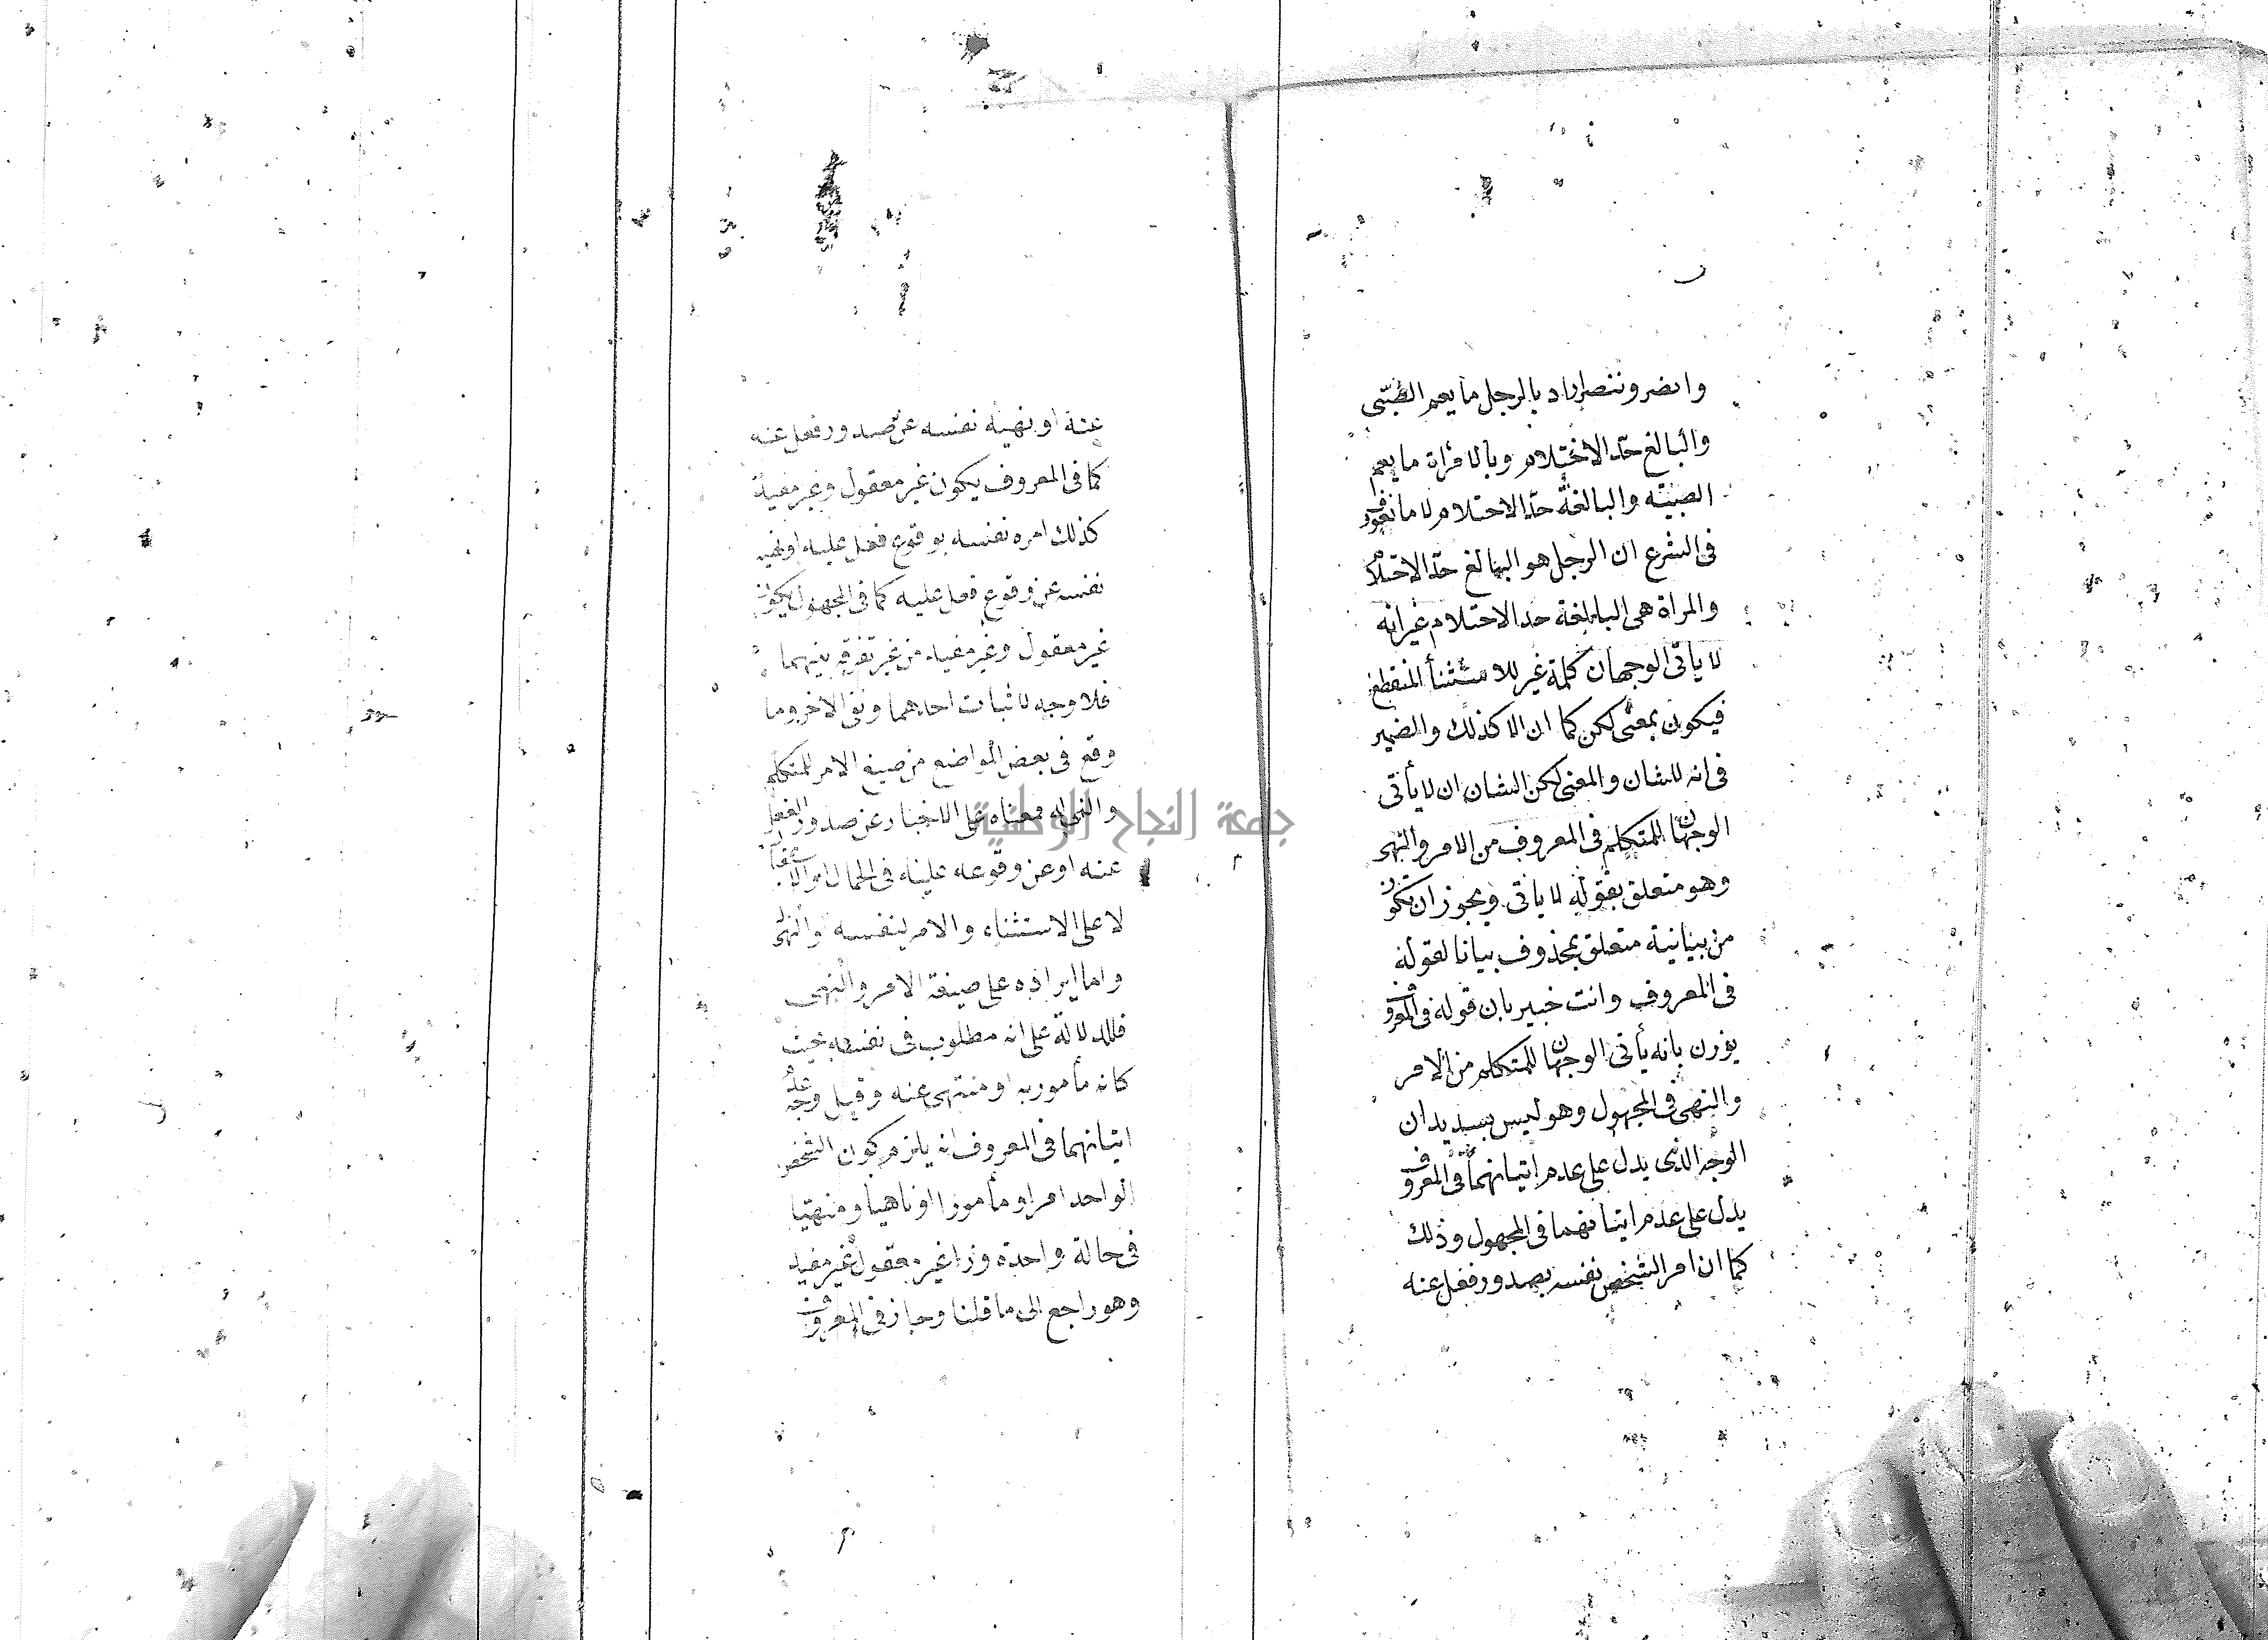 وانضر وننصر اراد بالرجل ما يعم الصبى
والبالغ حد الاختلام وبالامراة ما يعم
الصبيه والبالغة حد الاحتلام لا ما تعورف
فى الشرع ان الرجل هو البالغ حد الاحتلام
والمراة هى البالغة حد الاحتلام غير انه
لا ياتى الوجهان كلمة غير للاستثنأ المنقطع
فيكون بمعنى لكن كما ان الا كذلك والضمير
فى انه للشان والمعنى لكن الشان ان لا يأتى
الوجهان للمتكلم فى المعروف من الامر والنهى
وهو متعلق بقوله لا ياتى ويجوز ان تكون
من بيانية متعلق بمحذوف بيانا لقوله
فى المعروف وانت خبير بان قوله فى المعروف
يوزن بانه يأتى الوجهان للمتكلم من الامر
والنهى فى المجهول وهو ليس بسديد ان
الوجه الذى يدل على عدم اتيانهما فى المعروف
يدل على عدم اتيانهما فى المجهول وذلك
كما ان امر الشخص نفسه بصدور فعل عنه
عنه او نهيه نفسه عن صدور فعل عنه
كما فى المعروف يكون غير معقول وغير مفيد
كذلك امره نفسه بوقوع فعل عليه او نهيه
نفسه عن وقوع فعل عليه كما فى المجهول يكون
غير معقول وغير مفيد من غير تفرقه بينهما
فلا وجه لاثبات احدهما ونفى الاخر وما
وقع فى بعض المواضع من صيغ الامر للمتكلم
والنهى له معناه على الاخبار عن صدور الفعل
عنه او عن وقوعه عليه فى الحال او
لا على الاستثناء والامر لنفسه والنهى
واما ايراده على صيغة الامر والنهى
فللدلالة على انه مطلوب فى نفسه بحيث
كانه مأمور به او منتهى عنه وقيل وجه عدم
اتيانهما فى المعروف انه يلزم كون الشخص
الواحد امرا ومأمورا او ناهيا ومنهيا
فى حالة واحدة وذا غير معقول غير مفيد
وهو راجع الى ما قلنا وجاز فى المعروف
جامعة النجاح الوطنية